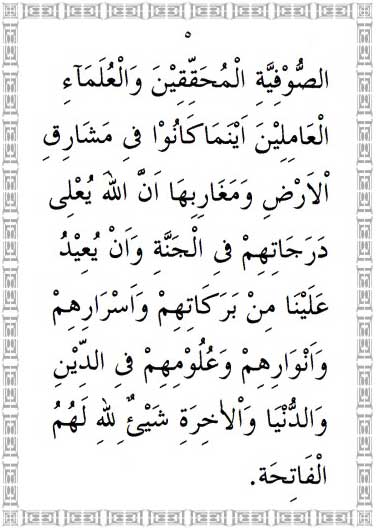 ٥
الصُّوْفِيَّةِ الْمُحَقِّقِيْنَ وَالْعُلَمَآءِ
الْعَامِلِيْنَ اَيْنَمَاكَانُوْا فِى مَشَارِقِ
اْلاَرْضِ وَمَغَارِبِهَا اَنَّ اللهَ يُعْلِى
دَرَجَاتِهِمْ فِى الْجَنَّةِ وَاَنْ يُعِيْدُ
عَلَيْنَا مِنْ بَرَكَاتِهِمْ وَاَسْرَارِهِمْ
وَاَنْوَارِهِمْ وَعُلُوْمِهِمْ فِى الدِّيْنِ
وَالدُّنْيَا وَاْلاٰخِرَةِ شَيْئٌ لِلّٰهِ لَهُمُ
الْفَاتِحَة.